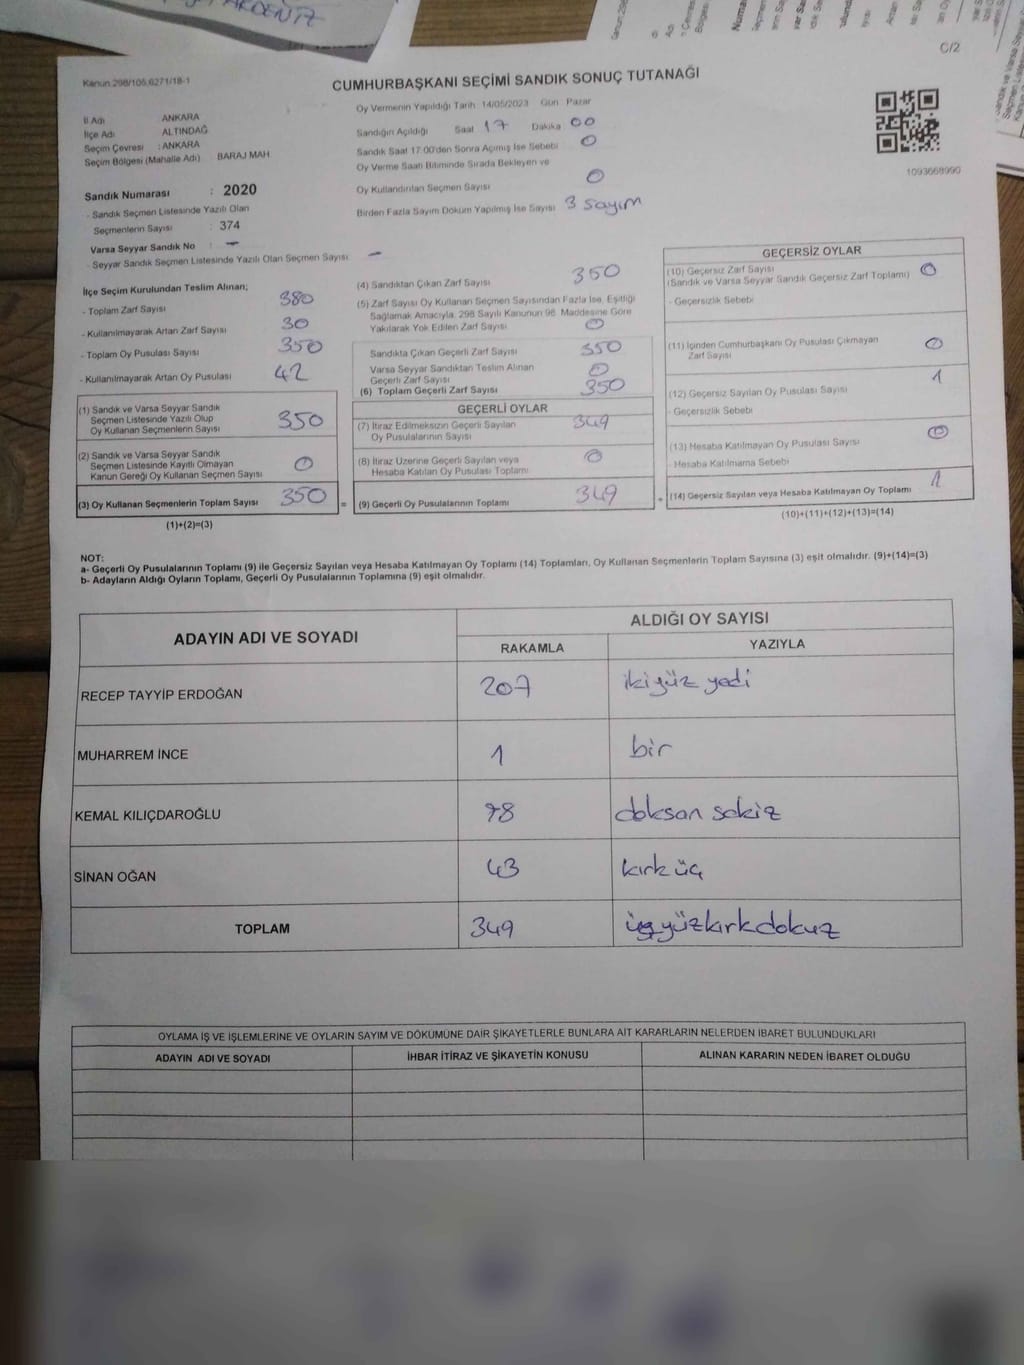 AKDENİZ
C/2
Kanun 298/105,6271/18-1
CUMHURBAŞKANI SEÇİMİ SANDIK SONUÇ TUTANAĞI
İl Adı ANKARA
İlçe Adı ALTINDAĞ
Seçim Çevresi : ANKARA
Seçim Bölgesi (Mahalle Adı) BARAJ MAH
Sandık Numarası : 2020
- Sandık Seçmen Listesinde Yazılı Olan
Seçmenlerin Sayısı : 374
Varsa Seyyar Sandık No : -
- Seyyar Sandık Seçmen Listesinde Yazılı Olan Seçmen Sayısı -
Oy Vermenin Yapıldığı Tarih 14/05/2023 Gün Pazar
Sandığın Açıldığı Saat 17 Dakika 00
Sandık Saat 17:00'den Sonra Açımış İse Sebebi 0
Oy Verme Saati Bitiminde Sırada Bekleyen ve
Oy Kullandırılan Seçmen Sayısı 0
Birden Fazla Sayım Döküm Yapılmış İse Sayısı 3 sayım
1093668990
İlçe Seçim Kurulundan Teslim Alınan;
- Toplam Zarf Sayısı 380
- Kullanılmayarak Artan Zarf Sayısı 30
- Toplam Oy Pusulası Sayısı 350
- Kullanılmayarak Artan Oy Pusulası 42
(1) Sandık ve Varsa Seyyar Sandık
Seçmen Listesinde Yazılı Olup
Oy Kullanan Seçmenlerin Sayısı 350
(2) Sandık ve Varsa Seyyar Sandık
Seçmen Listesinde Kayıtlı Olmayan
Kanun Gereği Oy Kullanan Seçmen Sayısı 0
(3) Oy Kullanan Seçmenlerin Toplam Sayısı 350 =
(1)+(2)=(3)
(4) Sandıktan Çıkan Zarf Sayısı 350
(5) Zarf Sayısı Oy Kullanan Seçmen Sayısından Fazla İse, Eşitliği
Sağlamak Amacıyla, 298 Sayılı Kanunun 98. Maddesine Göre
Yakılarak Yok Edilen Zarf Sayısı 0
Sandıkta Çıkan Geçerli Zarf Sayısı 350
Varsa Seyyar Sandıktan Teslim Alınan
Geçerli Zarf Sayısı 0
(6) Toplam Geçerli Zarf Sayısı 350
GEÇERLİ OYLAR
(7) İtiraz Edilmeksizin Geçerli Sayılan
Oy Pusulalarının Sayısı 349
(8) İtiraz Üzerine Geçerli Sayılan veya
Hesaba Katılan Oy Pusulası Toplamı 0
(9) Geçerli Oy Pusulalarının Toplamı 349 +
GEÇERSİZ OYLAR
(10) Geçersiz Zarf Sayısı 0
(Sandık ve Varsa Seyyar Sandık Geçersiz Zarf Toplamı)
- Geçersizlik Sebebi
(11) İçinden Cumhurbaşkanı Oy Pusulası Çıkmayan
Zarf Sayısı 0
(12) Geçersiz Sayılan Oy Pusulası Sayısı 1
- Geçersizlik Sebebi
(13) Hesaba Katılmayan Oy Pusulası Sayısı 0
- Hesaba Katılmama Sebebi
(14) Geçersiz Sayılan veya Hesaba Katılmayan Oy Toplamı 1
(10)+(11)+(12)+(13)=(14)
NOT:
a- Geçerli Oy Pusulalarının Toplamı (9) ile Geçersiz Sayılan veya Hesaba Katılmayan Oy Toplamı (14) Toplamları, Oy Kullanan Seçmenlerin Toplam Sayısına (3) eşit olmalıdır. (9)+(14)=(3)
b- Adayların Aldığı Oyların Toplamı, Geçerli Oy Pusulalarının Toplamına (9) eşit olmalıdır.
ADAYIN ADI VE SOYADI ALDIĞI OY SAYISI
RAKAMLA YAZIYLA
RECEP TAYYİP ERDOĞAN 207 ikiyüz yedi
MUHARREM İNCE 1 bir
KEMAL KILIÇDAROĞLU 98 doksan sekiz
SİNAN OĞAN 43 kırk üç
TOPLAM 349 üçyüzkırkdokuz
OYLAMA İŞ VE İŞLEMLERİNE VE OYLARIN SAYIM VE DÖKÜMÜNE DAİR ŞİKAYETLERLE BUNLARA AİT KARARLARIN NELERDEN İBARET BULUNDUKLARI
ADAYIN ADI VE SOYADI İHBAR İTİRAZ VE ŞİKAYETİN KONUSU ALINAN KARARIN NEDEN İBARET OLDUĞU